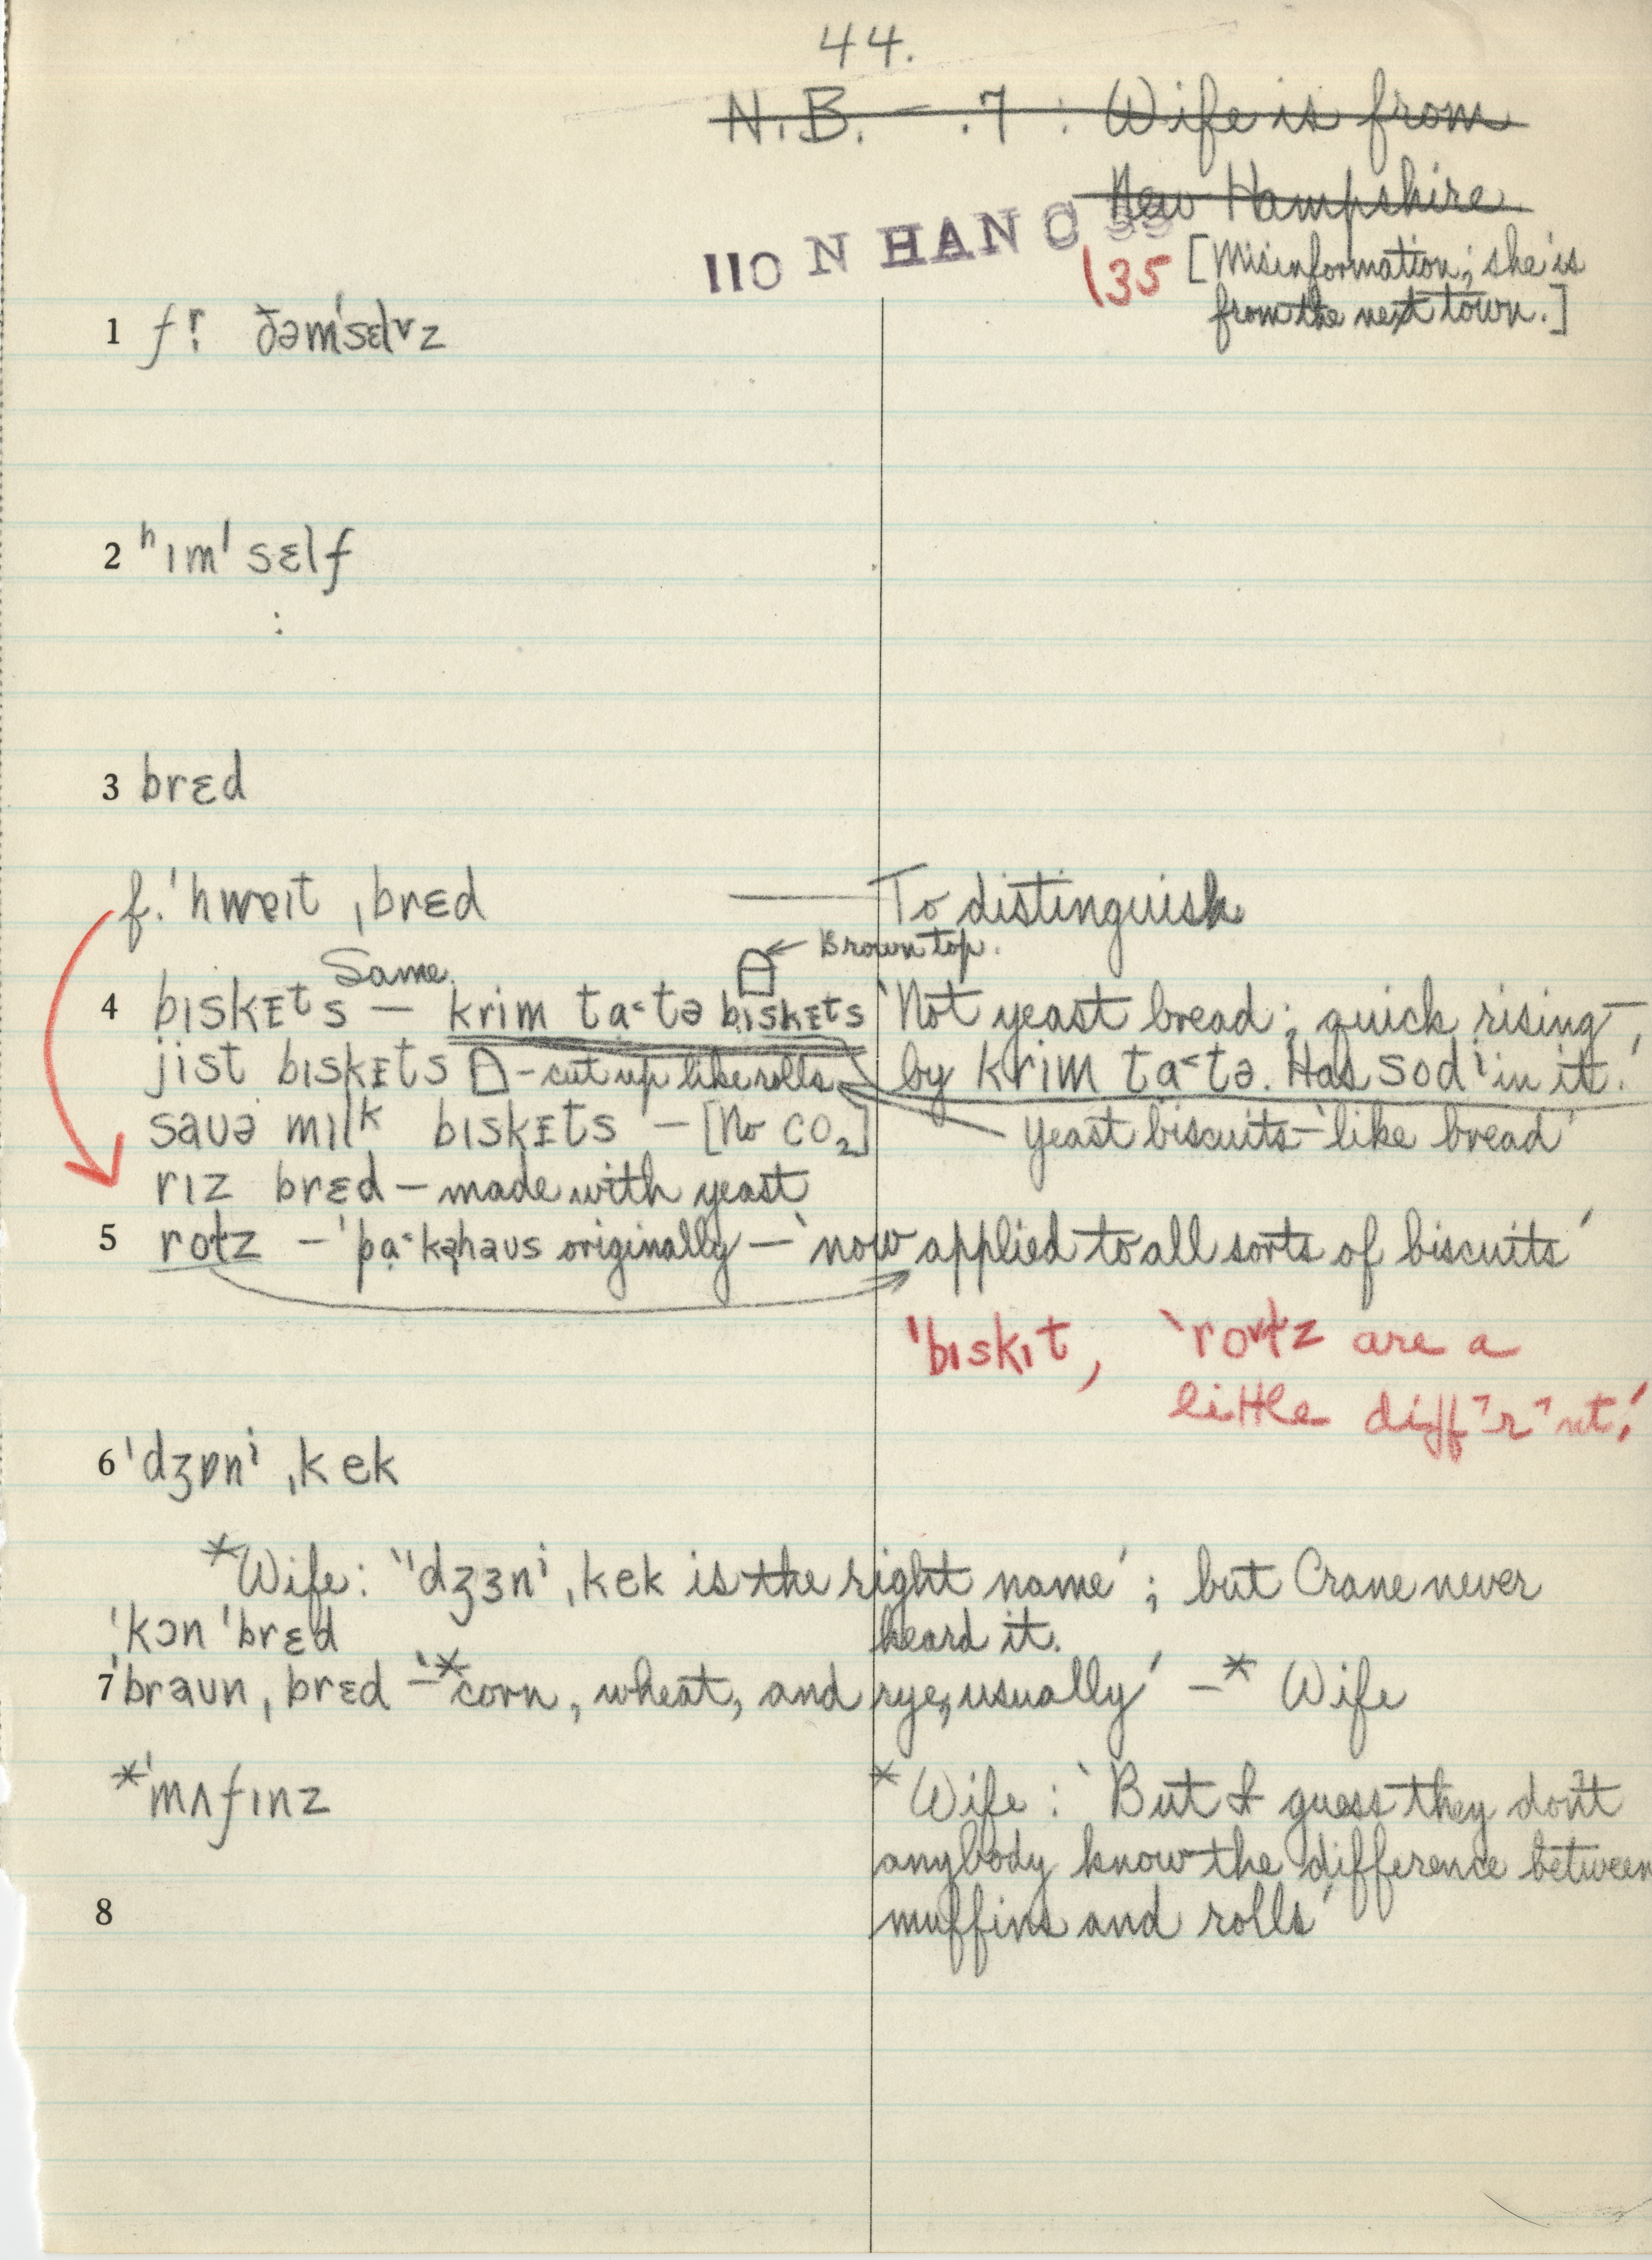 44.
N.B. – .7 : Wife is from
New Hampshire
110 N HAN C
135 [Misinformation; she is
from the next town.]
1 fr̩ ðəm'sɛlvz
2 ʰɪm'sɛlf
:
3 brɛd
f. 'hwɐɪt ˌbrɛd — To distinguish
Same ← Brown top.
4 bɪskᴇᵗs — krim ta˂tə bɪskᴇts 'Not yeast bread; quick rising –
jist bɪskᴇts – cut up like rolls by krim ta˂tə. Has sodⁱ in it.'
saʊə mɪlᵏ bɪskᴇts – [No CO₂] yeast biscuits – 'like bread'
rɪz brɛd – made with yeast
5 rotz – 'pa˂kəhaʊs originally – 'now applied to all sorts of biscuits'
'bɪskɪt, 'roᵛtz are a
little diffᵊrᵊnt.'
6 'dʒɒnⁱ ˌkek
*Wife: "dʒɜnⁱ ˌkek is the right name'; but Crane never
heard it.
'kɔn 'brɛd
7 'braʊn ˌbrɛd – '*corn, wheat, and rye, usually' – * Wife
*'mʌfɪnz
* Wife : 'But I guess they don't
anybody know the difference between
muffins and rolls'
8